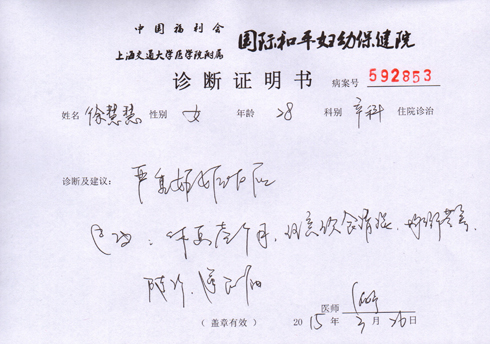 中国福利会
上海交通大学医学院附属 国际和平妇幼保健院
诊断证明书 病案号 592853
姓名 徐慧慧 性别 女 年龄 28 科别 产科 住院诊治
诊断及建议: 严重妊娠反应
建议:休息壹个月,注意饮食情况,加强营养
随诊
医师
(盖章有效) 2015年3月26日